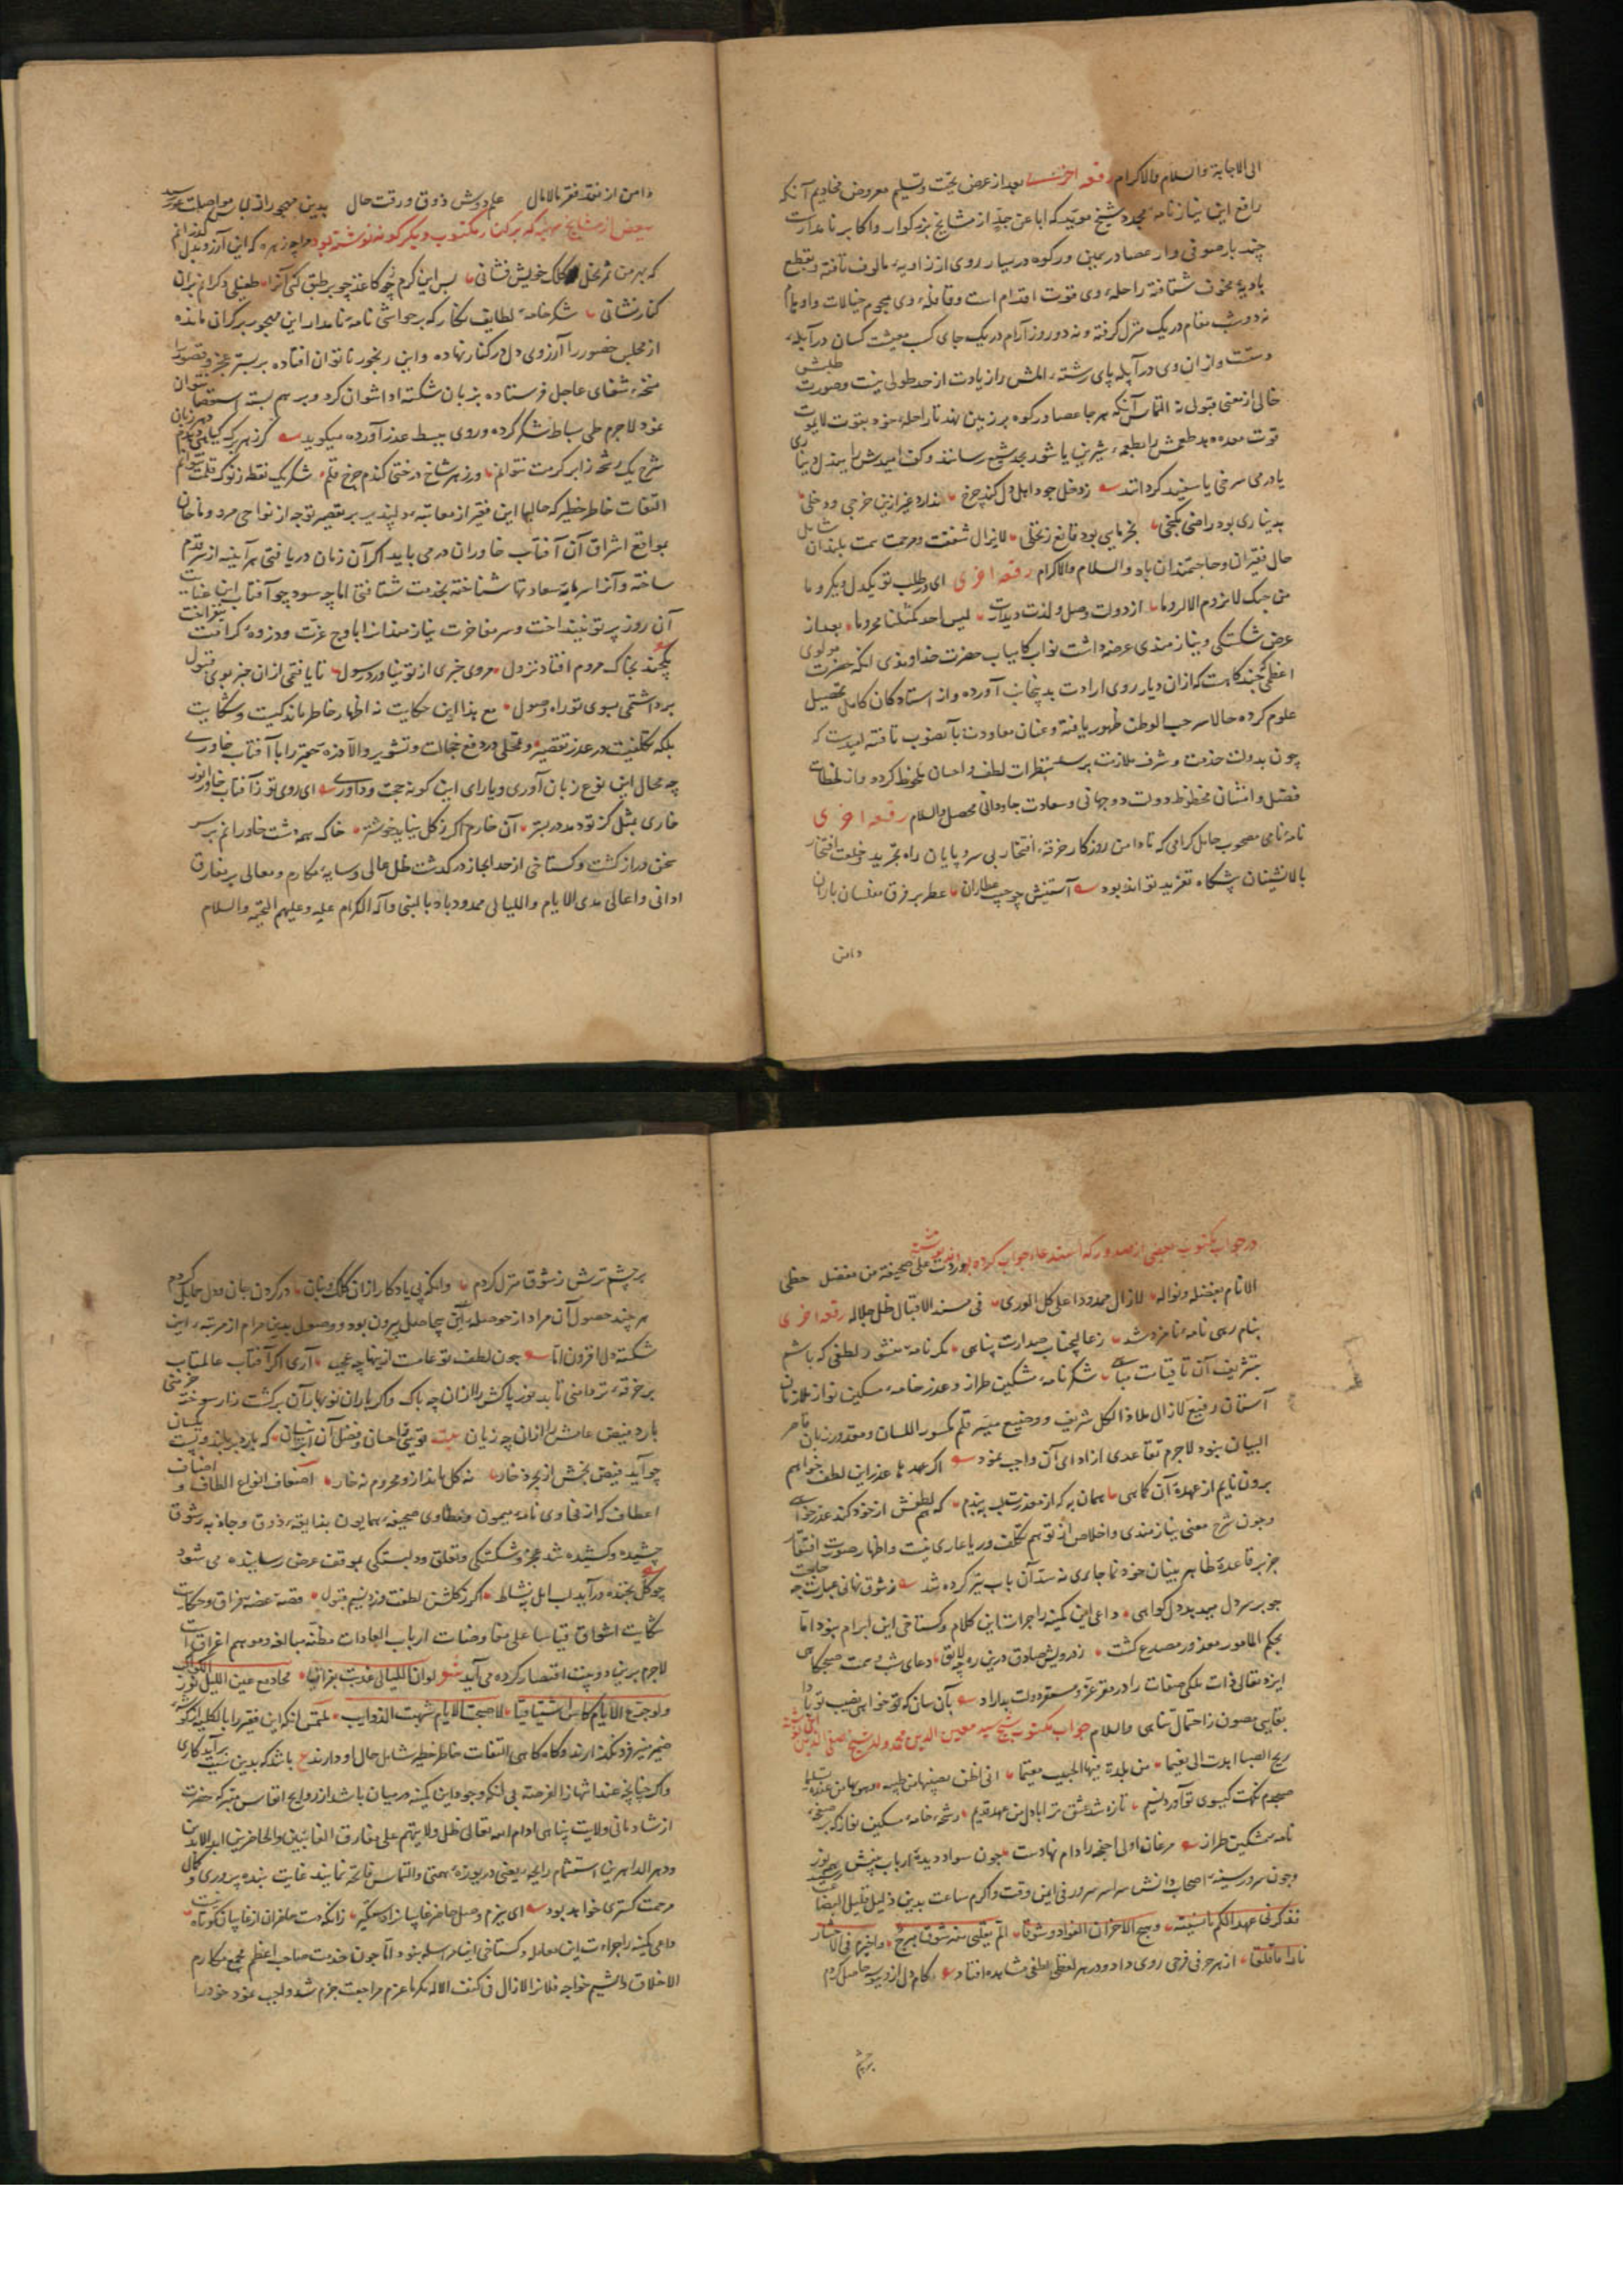 الی الاجابة والسلام والاکرام رقعه اخری بعد از عرض تحیت و تسلیم معروض مخادیم آنکه
رافع این نیازنامه شیخ مؤید که اباً عن جدٍّ از مشایخ بزرکوار و اکابر نامدارست
چند بار صوفی وار عصا در یمین و رکوه در یسار روی از زاویه مالوف تافته و بقطع
بادیه مخوف شتافته راحله وی قوت اقدام است و قافله وی هجوم خیالات و اوهام
نه دو شب مقام در یک منزل کرفته و نه دو روز آرام در یک جای کسب معیشت کسان در آبله
دستست و از ان وی در آبله پای رشته المش را زیادت از حد طولی نیست و صورت طلبش
خالی از معنی قبول نه التماس آنکه هر جا عصا و رکوه بر زمین نهد تا راحله خود بقوت لایموت
قوت دهد طعمش را بطعمه شیرین یا شور بحد شبع رسانند و کف امیدش را ببذل دیناری
یا درمی سرخی یا سفید کردانند زدخل جود اهل دل کند چرخ ندارد غیر ازین خرجی و دخلی
بدیناری بود راضی ز کنجی بخرمایی بود قانع ز نخلی لایزال شفقت و مرحمت سمت بلندان شامل
حال فقیران و حاجتمندان باد والسلام والاکرام رقعه اخری ای در طلب تو یکدل و یکرو ما
من حبک لانروم الا الروما از دولت وصل و لذت دیدارت لیس احد کمثلنا محروما بعد از
عرض شکستکی و نیازمندی عرضه داشت نواب کامیاب حضرت خداوندی انکه حضرت مولوی
اعظمی چند کاهست که از ان دیار روی ارادت بدینجانب آورده و از استادکان کامل تحصیل
علوم کرده حالا سر حب الوطن ظهور یافته و عنان معاودت بآنصوب تافته امیدست که
چون بدولت خدمت و شرف ملازمت برسد بنظرات لطف و احسان ملحوظ کردد و از لحظات
فضل و امتنان محظوظ دولت دوجهانی و سعادت جاودانی محصل والسلام رقعه اخری
نامه نامی مصحوب حامل کرامی که تا دامن روزکار خرقه افتخار بی سر و پایان راه تجرید و خلعت افتخار
بالانشینان پیشکاه تفرید تواند بود آستینش چو جیب عطاران عطر بر فرق مفلسان باران
دامن
دامن از نقد فقر مالامال علم دوش ذوق و رقت حال بدین مهجور از لباس مواصلت عور رسید
بعض از مشایخ نوشته که بر کنار مکتوب دیکر کونه نوشته بود مرا چه زهره که این آرزو بدل کذرانم
که بهر من ثمر نخل کلک خویش فشانی بس این کرم نی چو کاغذ چو بر طبق کنی آنرا طفیلی دکرانم بران
کنار نشانی شکر خامه لطایف نکار که بر حواشی نامه نامدار این مهجور بر کران مانده
از مجلس حضور را آرزوی دل در کنار نهاده و این رنجور ناتوان افتاده بر بستر عجز و قصور را
نسخه شفای عاجل فرستاده بزبان شکسته ادا نتوان کرد و بر هم بسته استقصا نتوان
نمود لاجرم طی بساط شکر کرده و روی ببسط عذر آورده میکوید کر ز هر برک کیاهی بدمد هر زبان
شرح یک رشحه ز ابر کرمت نتوانم ور ز هر شاخ درختی کندم چرخ قلم شکر یک نقطه ز نوک قلمت نتوانم
التفات خاطر خطیر که حالها این فقیر از معاتبه دلپذیر بر تقصیر توجه از نواحی مرو و ماخان
بمواقع اشراق آن آفتاب خاوران در می باید اکر آن زمان دریافتی هر آینه از سر قدم
ساخته و آنرا سرمایه سعادتها شناخته بخدمت شتافتی اما چه سود چو آفتاب این عنایت
آن روز پرتو نینداخت و سر مفاخرت نیازمندانرا باوج عزت و ذروه کرامت نیفراخت
یکچند بخاک مروم افتاد نزول مروی خبری از تو نیاورد رسول تا یافتی از ان خبر بوی قبول
برداشتمی بسوی تو راه وصول مع هذا این حکایت نه اظهار خاطر ماندکیست و شکایت
بلکه تکلفیست در عذر تقصیر و تمحلی در دفع خجالت و تشویر والا ذره حقیر را با آفتاب خاوری
چه محال این نوع زبان آوری و یارای این کونه حجت و داوری ای روی تو ز آفتاب خاور انور
خاری بمثل کز تو دمد در بستر آن خار مرا کر ز کل نباید خوشتر خاک همه دشت خاورانم بر سر
سخن دراز کشت و کستاخی از حد ایجاز در کذشت ظل عالی و سایه مکارم و معالی بر مفارق
ادانی و اعالی مدی الایام واللیالی ممدود باد بالنبی وآله الکرام علیه وعلیهم التحیه والسلام
در جواب مکتوب بعضی از صدور که استدعاء جواب کرده بودند نوشته وردت علی صحیفة من مفضل حظی
الانام بفضله ونواله لازال ممدوداً علی کل الوری فی مسند الاقبال ظل جلاله رقعه اخری
بنام رهی نامه نامزد شد ز عالیجناب صدارت پناهی مکر نامه منشور لطفی که باشم
بتشریف آن تا قیامت مباهی شکر نامه مشکین طراز و عذر خامه مسکین نواز ملازمان
آستان رفیع لازال ملاذا لکل شریف و وضیع میسر قلم مکسور اللسان و مقدور زبان قاصر
البیان نبود لاجرم تقاعدی از ادای آن واجب نمود اکر عمرها عذر این لطف خواهم
برون نایم از عهده آن کماهی همان به که از معذرت لب ببندم که هم لطفش از خود کند عذرخواهی
و چون شرح معنی نیازمندی و اخلاص از توهم تکلف و ریا عاری نیست و اظهار صورت افتقار
جز بر قاعده ظاهر بینان خودنما جاری نه سد آن باب نیز کرده شد ز شوق نهانی عبارت چه حاجت
چو بر سر دل میدهد دل کواهی داعی این کمینه را جرات این کلام و کستاخی این ابرام نبود اما
بحکم المامور معذور مصدع کشت ز درویش صادق درین ره چه لایق دعای شب و همت صبحکاهی
ایزد تعالی ذات ملکی صفات را در مقر عزت و مستقر دولت بداراد بآن سان که تو خواهی نصیب تو بادا
بقایی مصون ز احتمال تناهی والسلام جواب مکتوب شیخ سید معین الدین محمد ولد شیخ صفی الدین
ریح الصبا اهدت الی نعیما من بلدة فیها الحبیب مقیما انی اظن
صبحدم نکهت کیسوی تو آورد نسیم تازه شد عشق ترا با دل من عهد قدیم رشحه خامه مسکین نواز که بر صفحه
نامه مشکین طراز مرغان اولی اجنحه را دام نهادست چون سواد دیده ارباب بینش همه نور
و چون سرور سینه اصحاب دانش سراسر سرور فی ایمن وقت و اکرم ساعت بدین ذلیل قلیل البضاعت رسید
تذکرنی عهدالکم مانسیته ویهیج الاحزان الفواد وشوقا الم بقلبی منه شوق مبرح واضرم فی الاحشاء
نارا ما قلقا از هر حرفی فرحی روی داد و در هر لفظی لطفی مشاهده افتاد کام دل از و بوسه حاصل کردم
بر چشم
بر چشم ترش ز شوق منزل کردم وانکه پی یادکار از ان کلک و بنان در کردن جان و دل حمایل کردم
هر چند حصول آن مراد از حوصله این بیحاصل بیرون بود و وصول بدین مرام از مرتبه این
شکسته دل افزون اما چون لطف تو عامست ازینها چه عجب آری اکر آفتاب عالمتاب
بر خرقه تردامنی تابد نور پاکش را از ان چه باک و اکر باران نوبهار آن بر کشت زار سوخته خرمنی
بارد فیض عامش را از ان چه زیان بیت تویی در احسان و فضل آن ابر نیسان که بارد بر بلند و پست یکسان
چو آید فیض بخش از بحر ذخار نه کل ماند ازو محروم نه خار اضعاف انواع الطاف و اصناف
اعطاف که از فحاوی نامه میمون و مطاوی صحیفه همایون بذایقه ذوق و جاذبه شوق
چشیده و کشیده شد عجز و شکستکی و تعلق و دلبستکی بموقف عرض رسانیده می شود
چو کل بخنده درآید لب امل بنشاط اکر ز کلشن لطفت وزد نسیم قبول قصه غصه فراق و حکایت
شکایت اشواق قیاسا علی مفاوضات ارباب العادات مظنه مبالغه و موهم اغراق است
لاجرم برین دو بیت اقتصار کرده می آید شعر لوان اللیالی عذبت بفراقنا محا دمع عین اللیل نور الکواکب
ولو جرع الایام کاس اشتیاقنا لاصبحت الایام شهب الذوایب ملتمس انکه این فقیر را بالکلیه از کوشه
ضمیر منیر فرو نکذارند و کاه کاهی التفات خاطر خطیر شامل حال او دارند ع باشد که بدین نسبت برآید کاری
واکر چنانچه عند انتهاز الفرصة بی انکه وجود این کمینه در میان باشد از روایح انفاس متبرکه حضرت
ارشاد مآبی ولایت پناهی ادام الله تعالی ظل ولایتهم علی مفارق الغائبین والحاضرین ابد الآبدین
ودهر الداهرین استشمام رایحه یعنی دریوزه همتی والتماس فاتحه نمایند غایت بنده پروری و کمال
مرحمت کستری خواهد بود ای بزم وصل حاضر غایبان را دست کیر زانکه دست حاضران از غایبان کوتاه نیست
داعی کمینه را جراءت این معامله و کستاخی این مراسله نبود اما چون خدمت صاحب اعظم مجمع مکارم
الاخلاق والشیم خواجه فلان لازال فی کنف الاله مکرما عزم مراجعت جزم شد واجب نمود خود را